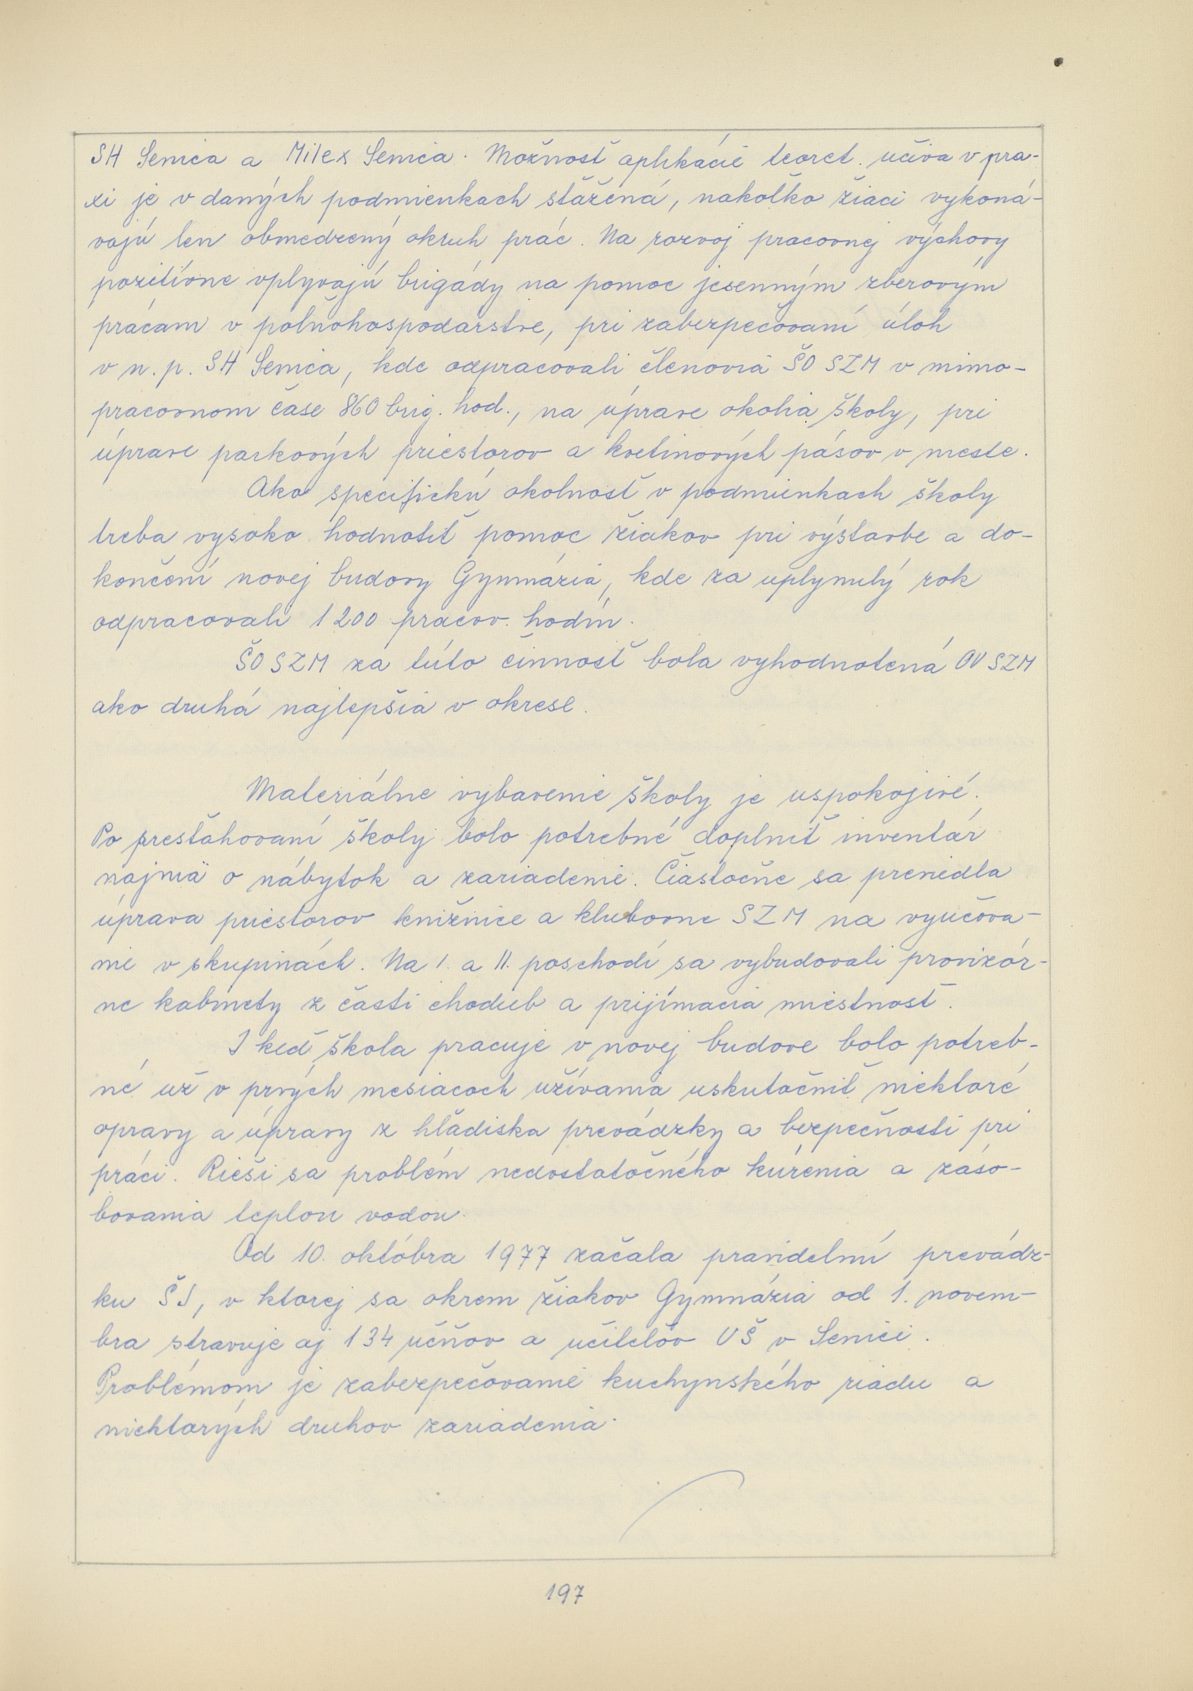 SH Senica a Milex Senica. Možnosť aplikácie teoret. učiva v pra-
xi je v daných podmienkach sťažená, nakoľko žiaci vykoná-
vajú len obmedzený okruh prác. Na rozvoj pracovnej výchovy
pozitívne vplyvajú brigády na pomoc jesenným zberovým
prácam v poľnohospodárstve, pri zabezpečovaní úloh
v n. p. SH Senica, kde odpracovali členovia ŠO SZM v mimo-
pracovnom čase 860 brig. hod., na úprave okolia školy, pri
úprave parkových priestorov a kvetinových pásov v meste.
Ako specifickú okolnosť v podmienkach školy
treba vysoko hodnotiť pomoc žiakov pri výstavbe a do-
končení novej budovy Gymnázia, kde za uplynulý rok
odpracovali 1200 pracov. hodín.
ŠO SZM za túto činnosť bola vyhodnotená OV SZM
ako druhá najlepšia v okrese.
Materiálne vybavenie školy je uspokojivé.
Po presťahovaní školy bolo potrebné doplniť inventár
najmä o nábytok a zariadenie. Čiastočne sa previedla
úprava priestorov knižnice a klubovne SZM na vyučova-
nie v skupinách. Na I. a II. poschodí sa vybudovali provizór-
ne kabinety z časti chodieb a prijímacia miestnosť.
I keď škola pracuje v novej budove bolo potreb-
né už v prvých mesiacoch užívania uskutočniť niektoré
opravy a úpravy z hľadiska prevádzky a bezpečnosti pri
práci. Rieši sa problém nedostatočného kúrenia a záso-
bovania teplou vodou.
Od 10. októbra 1977 začala pravidelnú prevádz-
ku ŠJ, v ktorej sa okrem žiakov Gymnázia od 1. novem-
bra stravuje aj 134 učňov a učiteľov UŠ v Senici.
Problémom je zabezpečovanie kuchynského riadu a
niektorých druhov zariadenia.
197